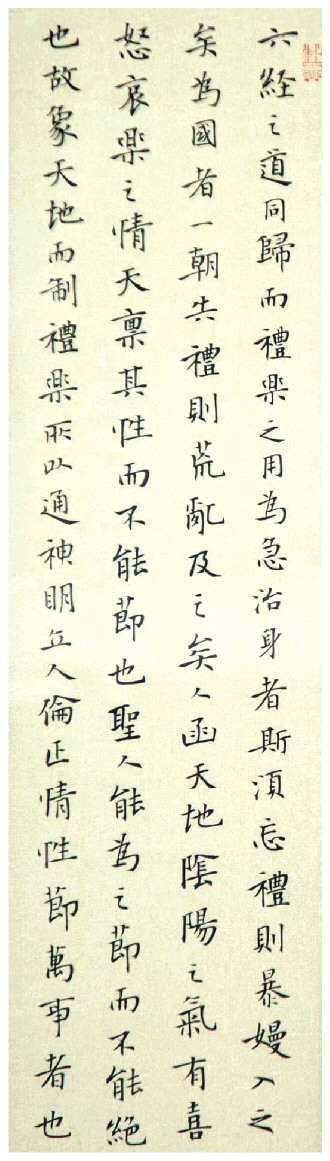 六経之道同歸而禮樂之用為急治身者斯須忘禮則暴嫚入之
矣為國者一朝失禮則荒亂及之矣人函天地陰陽之氣有喜
怒哀樂之情天稟其性而不能節也聖人能為之節而不能絕
也故象天地而制禮樂所以通神明立人倫正情性節萬事者也